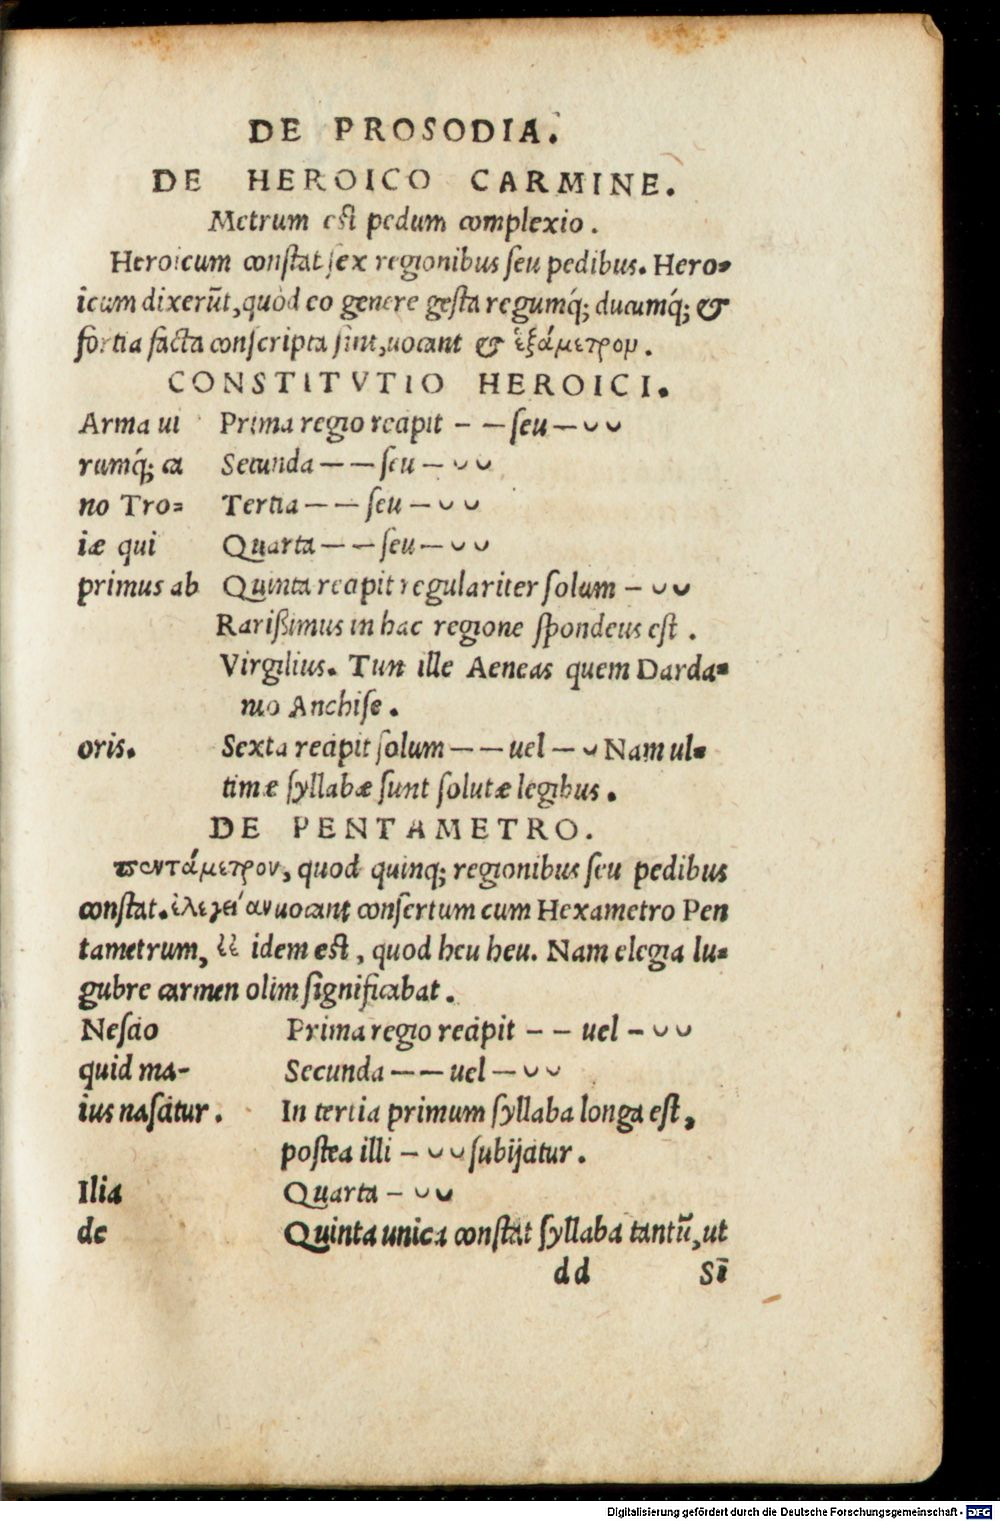 DE PROSODIA.
DE HEROICO CARMINE.
Metrum est pedum complexio.
Heroicum conſtat ſex regionibus ſeu pedibus. Hero⸗
icum dixerũt, quòd eo genere geſta regumq́; ducumq́; &
fortia facta conſcripta ſint, uocant & ἑξάμετρον.
CONSTITVTIO HEROICI.
Arma ui Prima regio recipit – – ſeu – ᴗ ᴗ
rumq́; ca Secunda – – ſeu – ᴗ ᴗ
no Tro⸗ Tertia – – ſeu – ᴗ ᴗ
iæ qui Quarta – – ſeu – ᴗ ᴗ
primus ab Quinta recipit regulariter ſolum – ᴗ ᴗ
Rariſsimus in hac regione ſpondeus eſt.
Virgilius. Tun ille Aeneas quem Darda⸗
nio Anchiſe.
oris. Sexta recipit ſolum – – uel – ᴗ Nam ul⸗
timæ ſyllabæ ſunt ſolutæ legibus.
DE PENTAMETRO.
πεντάμετρον, quod quinq; regionibus ſeu pedibus
conſtat. ἐλεγείαν uocant conſertum cum Hexametro Pen
tametrum, ἒ ἒ idem eſt, quod heu heu. Nam elegia lu⸗
gubre carmen olim ſignificabat.
Neſcio Prima regio recipit – – uel – ᴗ ᴗ
quid ma- Secunda – – uel – ᴗ ᴗ
ius naſcitur. In tertia primum ſyllaba longa eſt,
poſtea illi – ᴗ ᴗ ſubijcitur.
Ilia Quarta – ᴗ ᴗ
de Quinta unica conſtat ſyllaba tantũ, ut
dd Sī
Digitalisierung gefördert durch die Deutsche Forschungsgemeinschaft - DFG